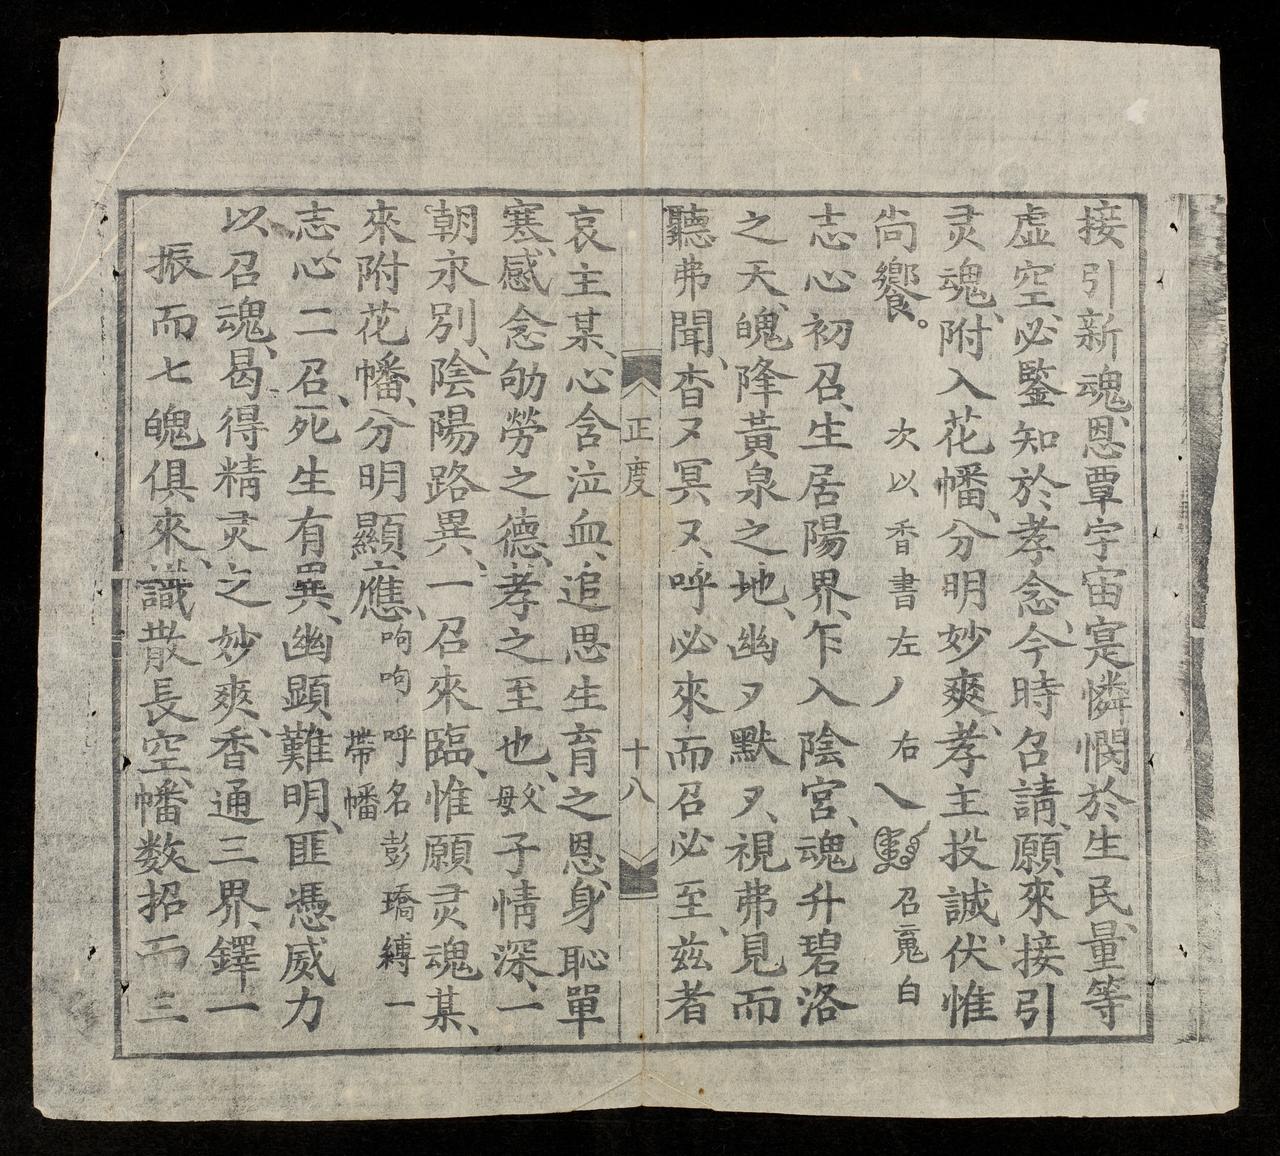 接引新魂、恩覃宇宙、寔憐憫於生民、量等
虛空、必鑒知於孝念、今時召請、願來接引
灵魂、附入花幡、分明妙爽、孝主投誠、伏惟
尚饗。 次以香書左丿右乀 召䰟白
志心初召、生居陽界、乍入陰宮、魂升碧洛
之天、魄降黃泉之地、幽ヌ默ヌ、視弗見而
聽弗聞、杳ヌ冥ヌ、呼必來而召必至、兹者
正度 十八
哀主某、心含泣血、追思生育之恩、身恥單
寒、感念劬勞之德、孝之至也、父母子情深、一
朝永別、陰陽路異、一召來臨、惟願灵魂某、
來附花幡、分明顯應、呴呴 呼名彭璚縛一
帶幡
志心二召、死生有異、幽顯難明、匪憑威力
以召魂、曷得精灵之妙爽、香通三界、鐸一
振而七魄俱來、識散長空、幡数招而三